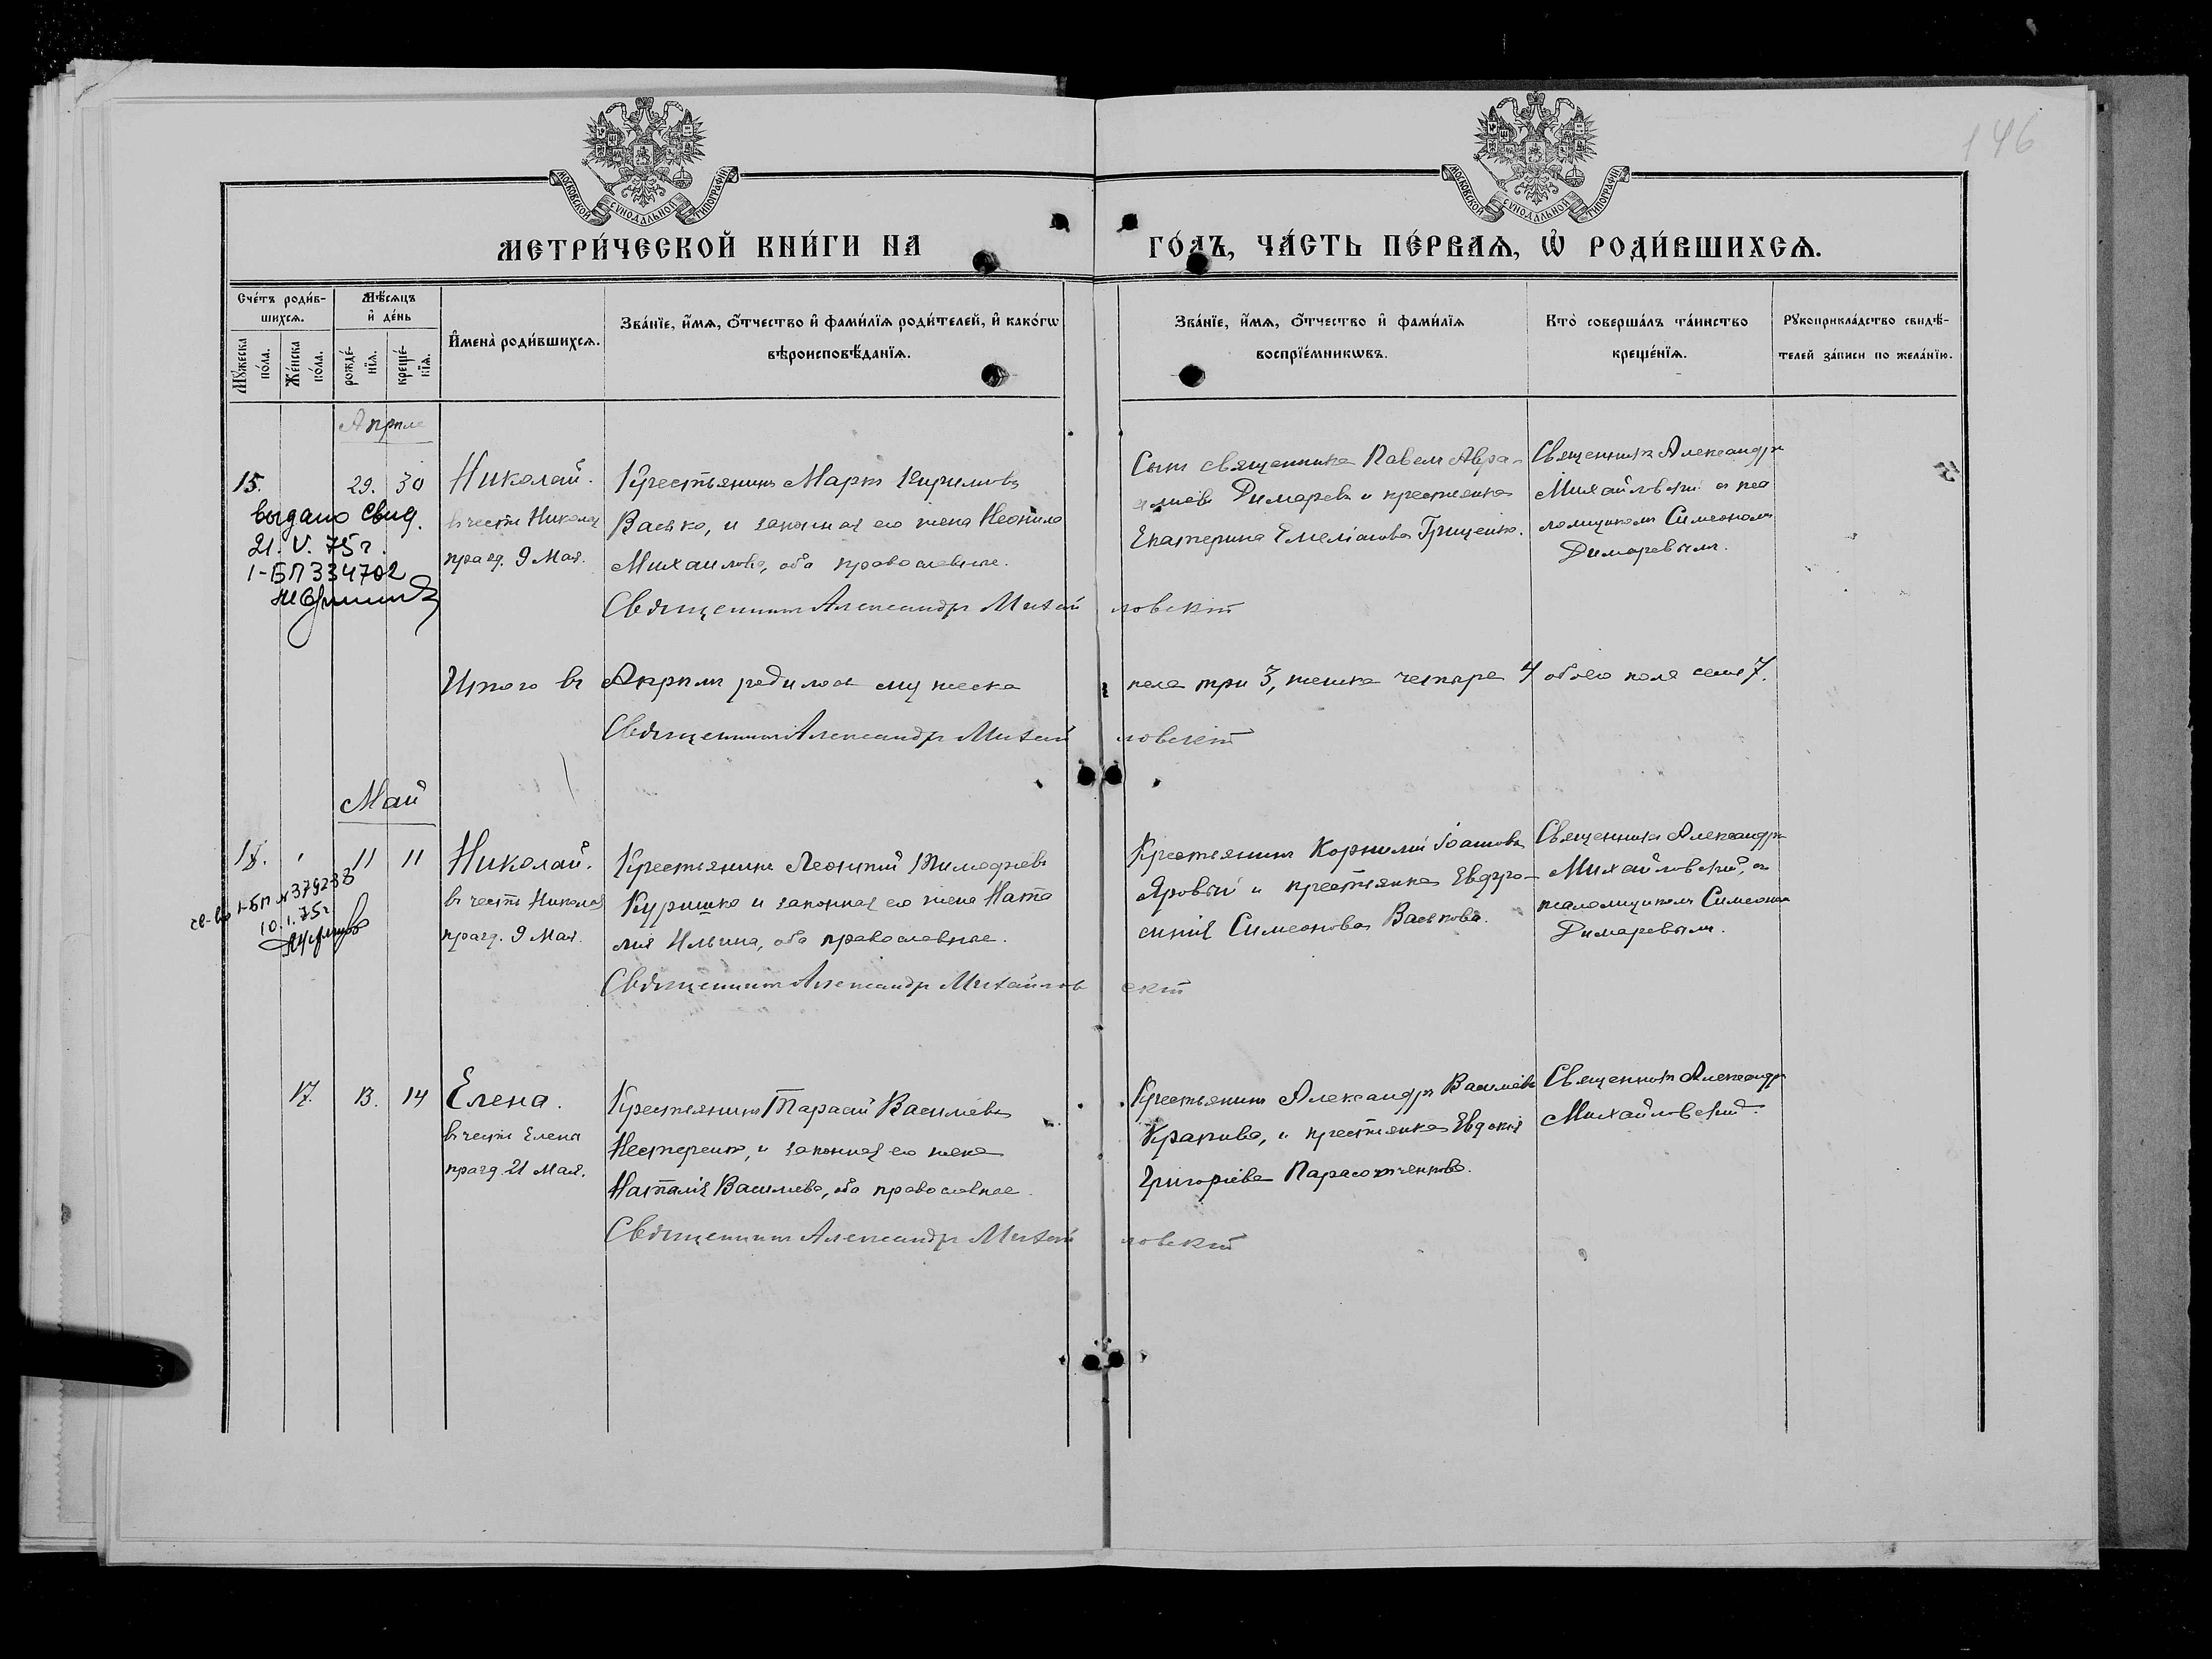 146
МОСКОВСКОЙ СѴНОДАЛЬНОЙ ТИПОГРАФІИ
МОСКОВСКОЙ СѴНОДАЛЬНОЙ ТИПОГРАФІИ
МЕТРИ́ЧЕСКОЙ КНИ́ГИ НА ГО́ДЪ, ЧА́СТЬ ПЕ́РВАѦ, Ѽ РОДИ́ВШИХСѦ.
Сче́тъ роди́в-
шихсѧ.
Мѣ́сѧцъ
и҆ де́нь
Мꙋ́жеска по́ла.
Же́нска по́ла.
рожде́-нїѧ.
креще́-нїѧ.
И҆мена̀ роди́вшихсѧ.
Зва́нїе, и҆́мѧ, ѻ҆́тчество и҆ фами́лїѧ роди́телей, и҆ како́гѡ
вѣроисповѣ́данїѧ.
Зва́нїе, и҆́мѧ, ѻ҆́тчество и҆ фами́лїѧ
воспрїе́мникѡвъ.
Кто̀ соверша́лъ та́инство
креще́нїѧ.
Рꙋкоприкла́дство свидѣ́-
телей за́писи по жела́нїю.
Апрѣль
15. 29. 30
выдано свид.
21. V. 75 г.
1-БП 334702
Николай.
въ честь Николая
празд. 9 Мая.
Крестьянинъ Маркъ Кириловъ
Васько, и законная его жена Неонила
Михаилова, оба православные.
Священникъ Александръ Михайловскій
Сынъ священника Павелъ Авра-
аміевъ Димаревъ и крестьянка
Екатерина Емеліанова Грищенко.
Священникъ Александръ
Михайловскій съ пса
ломщикомъ Симеономъ
Димаревымъ.
Итого въ Апрѣлѣ родилось мужеска пола три 3, женска четыре 4 обоего пола семь 7.
Священникъ Александръ Михайловскій
Май
11 11
10. I. 75 г.
Николай.
въ честь Николая
празд. 9 Мая.
Крестьянинъ Леонтій Тимофіевъ
Куришко и законная его жена Ната
лія Ильина, оба православные.
Священникъ Александръ Михайловскій
Крестьянинъ Корнилій Іоанновъ
Яровый и крестьянка Евфро-
синія Симеонова Васькова.
Священникъ Александръ
Михайловскій, съ
псаломщикомъ Симеономъ
Димаревымъ.
17. 13. 14
Елена.
въ честь Елены
празд. 21 Мая.
Крестьянинъ Тарасій Василіевъ
Нестеренко, и законная его жена
Наталія Василіева, оба православные.
Священникъ Александръ Михайловскій
Крестьянинъ Александръ Василіевъ
Крапива, и крестьянка Евдокія
Григоріева
Священникъ Александръ
Михайловскій.